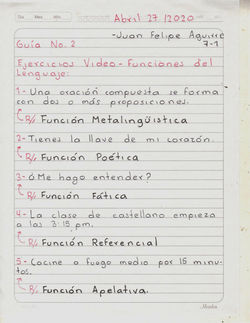 Abril 27/2020
-Juan Felipe Aguirre
7-1
Guía No. 2
Ejercicios Video-Funciones del
Lenguaje:
1- Una oración compuesta se forma
con dos o más proposiciones.
R/ Función Metalingüistica
2- Tienes la llave de mi corazón.
R/ Función Poética
3- ó Me hago entender?
R/ Función Fática
4- La clase de castellano empieza
a las 3:15 pm.
R/ Función Referencial
5- Cocine a fuego medio por 15 minu-
tos.
R/ Función Apelativa.